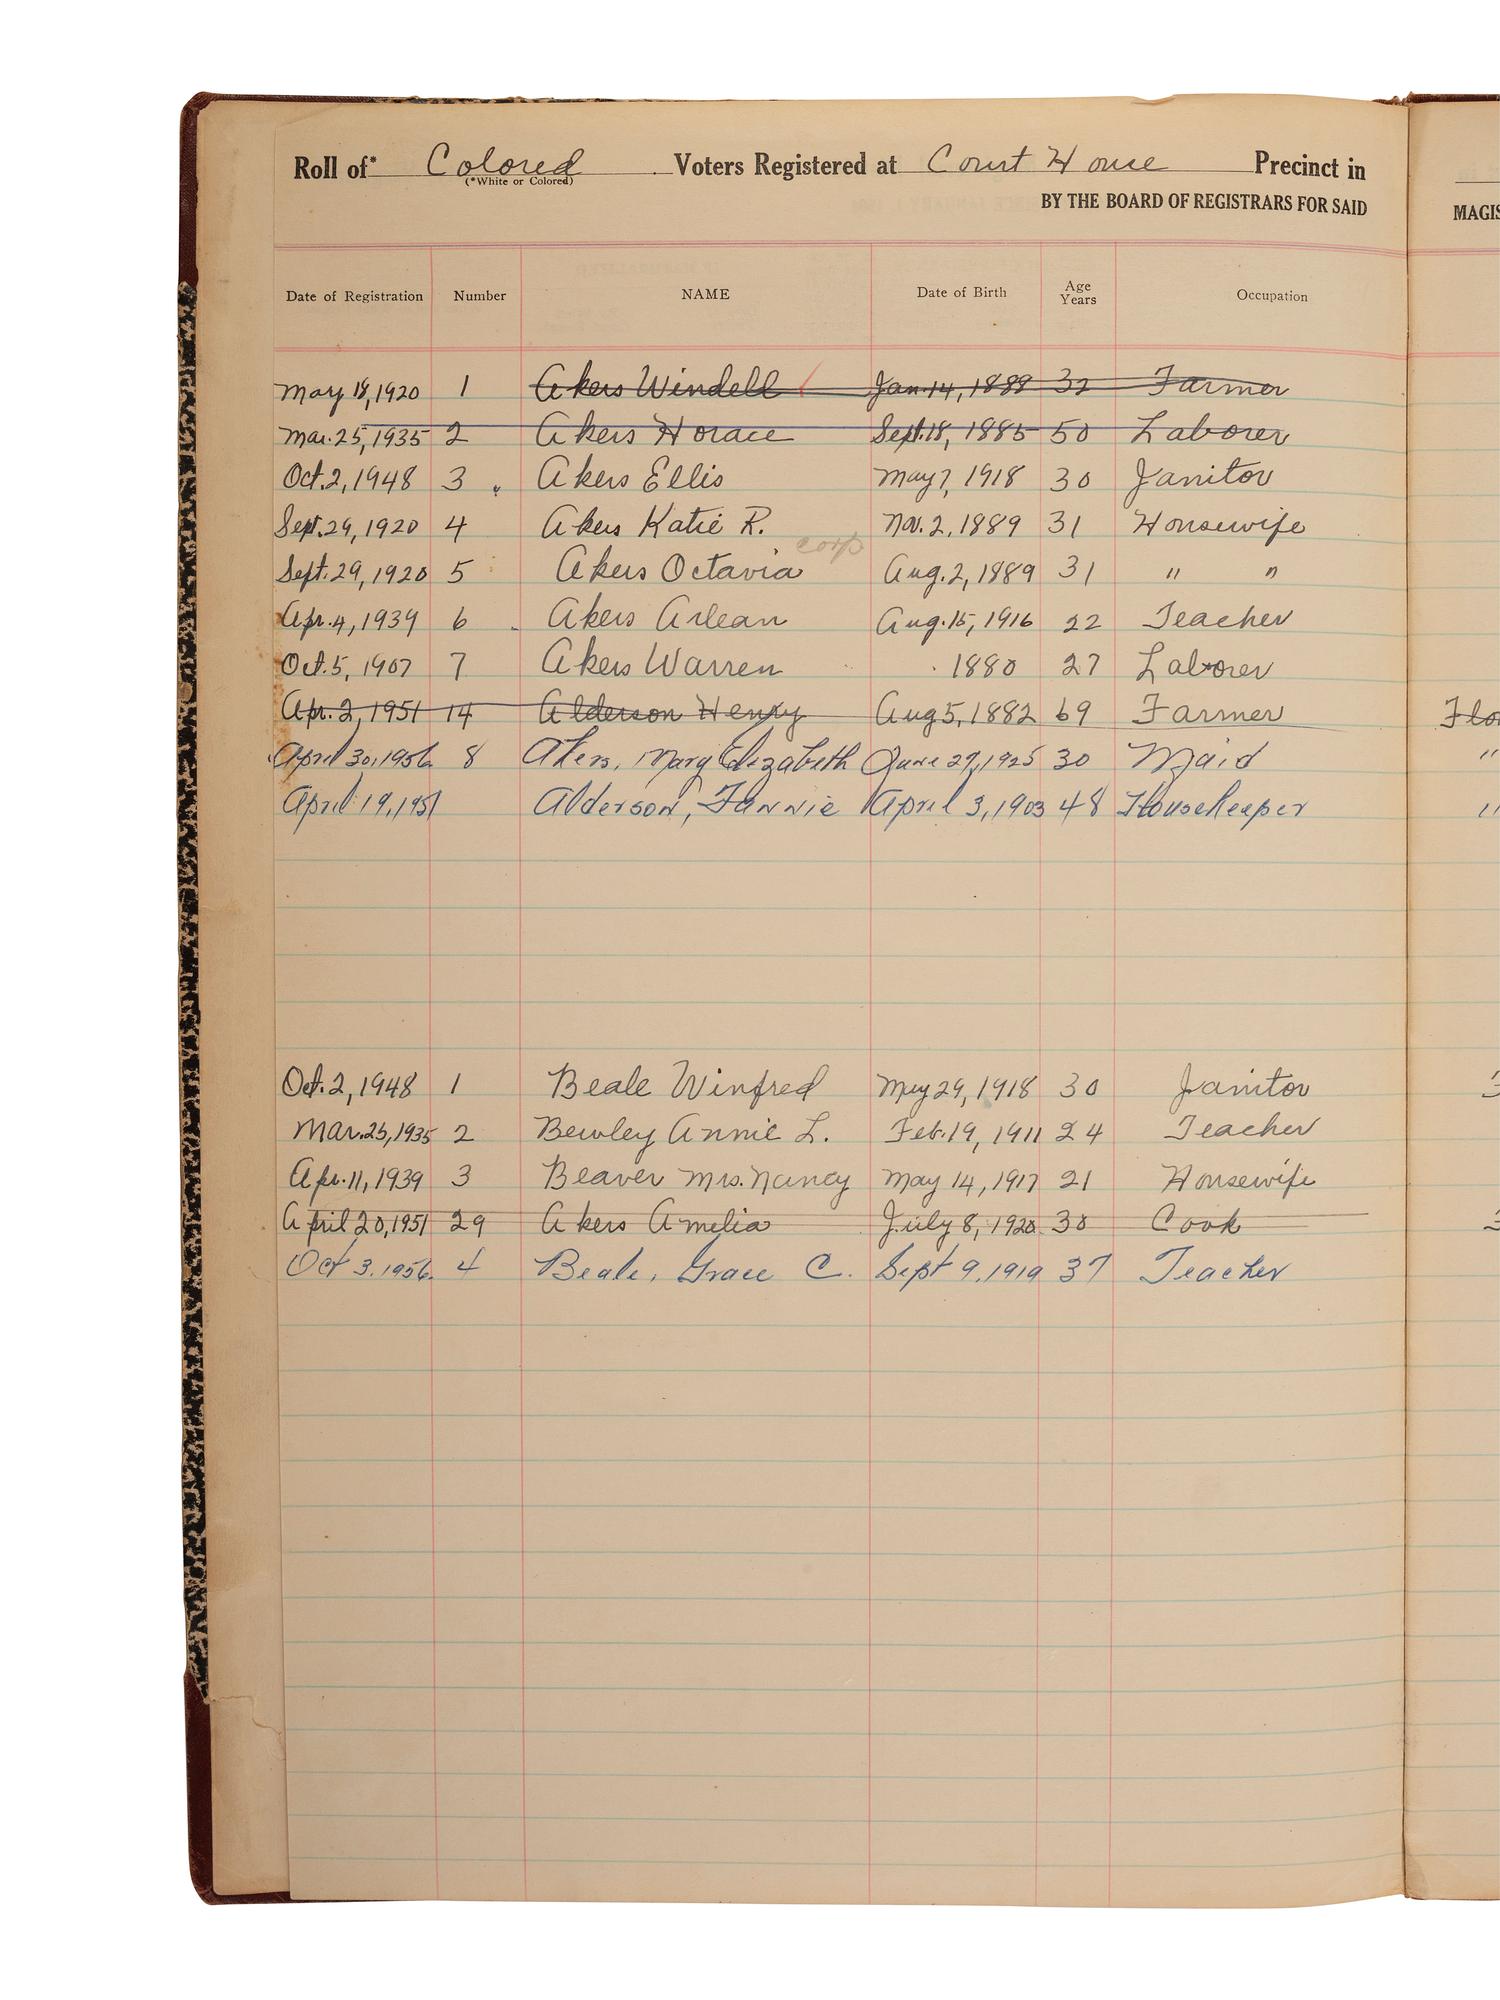 Roll of* Colored Voters Registered at Court House Precinct in
(*White or Colored)
BY THE BOARD OF REGISTRARS FOR SAID MAGIS
Date of Registration Number NAME Date of Birth Age Years Occupation
May 18, 1920 1 Akers Windell Jan. 14, 1888 32 Farmer
Mar. 25, 1935 2 Akers Horace Sept. 18, 1885 50 Laborer
Oct. 2, 1948 3 Akers Ellis May 7, 1918 30 Janitor
Sept. 29, 1920 4 Akers Katie R. Nov. 2, 1889 31 Housewife
corp
Sept. 29, 1920 5 Akers Octavia Aug. 2, 1889 31 " "
Apr. 4, 1939 6 Akers Arlean Aug. 15, 1916 22 Teacher
Oct. 5, 1907 7 Akers Warren 1880 27 Laborer
Apr. 2, 1951 14 Alderson Henry Aug 5, 1882 69 Farmer Flo
April 30, 1956 8 Akers, Mary Elizabeth June 29, 1925 30 Maid "
April 19, 1951 Alderson, Fannie April 3, 1903 48 Housekeeper "
Oct. 2, 1948 1 Beale Winfred May 29, 1918 30 Janitor
Mar. 25, 1935 2 Bewley Annie L. Feb. 19, 1911 24 Teacher
Apr. 11, 1939 3 Beaver Mrs. Nancy May 14, 1917 21 Housewife
April 20, 1951 29 Akers Amelia July 8, 1920 30 Cook
Oct 3, 1956 4 Beale, Grace C. Sept 9, 1919 37 Teacher